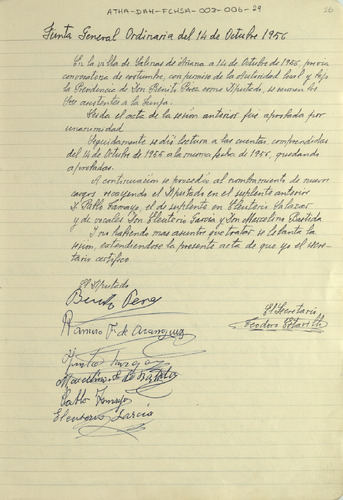 ATHA-DAH-FCHSA-003-006-29
26
Junta General Ordinaria del 14 de Octubre 1956
En la villa de Salinas de Añana a 14 de Octubre de 1956, previa
convocatoria de costumbre, con permiso de la Autoridad local y bajo
la Presidencia de Don Benito Perea como Diputado, se reunen los
Sres asistentes a la Junta.
Leida el acta de la sesión anterior fue aprobada por
unanimidad
Seguidamente se dió lectura a las cuentas, comprendidas
del 14 de Octubre de 1955 a la misma fecha de 1956, quedando
aprobadas.
A continuación se procedió al nombramiento de nuevos
cargos recayendo el Diputado en el suplente anterior
D. Pablo Tamayo, el de suplente en Eleuterio Salazar
y de vocales Don Eleuterio García y Don Marcelino
Y no habiendo mas asuntos que tratar se levanta la
sesión, extendiendose la presente acta de que yo el secre-
tario certifico
El Diputado
Benito Perea
El Secretario
Ramiro F. de Aranguiz
Teodoro
Pablo Tamayo
Eleuterio García